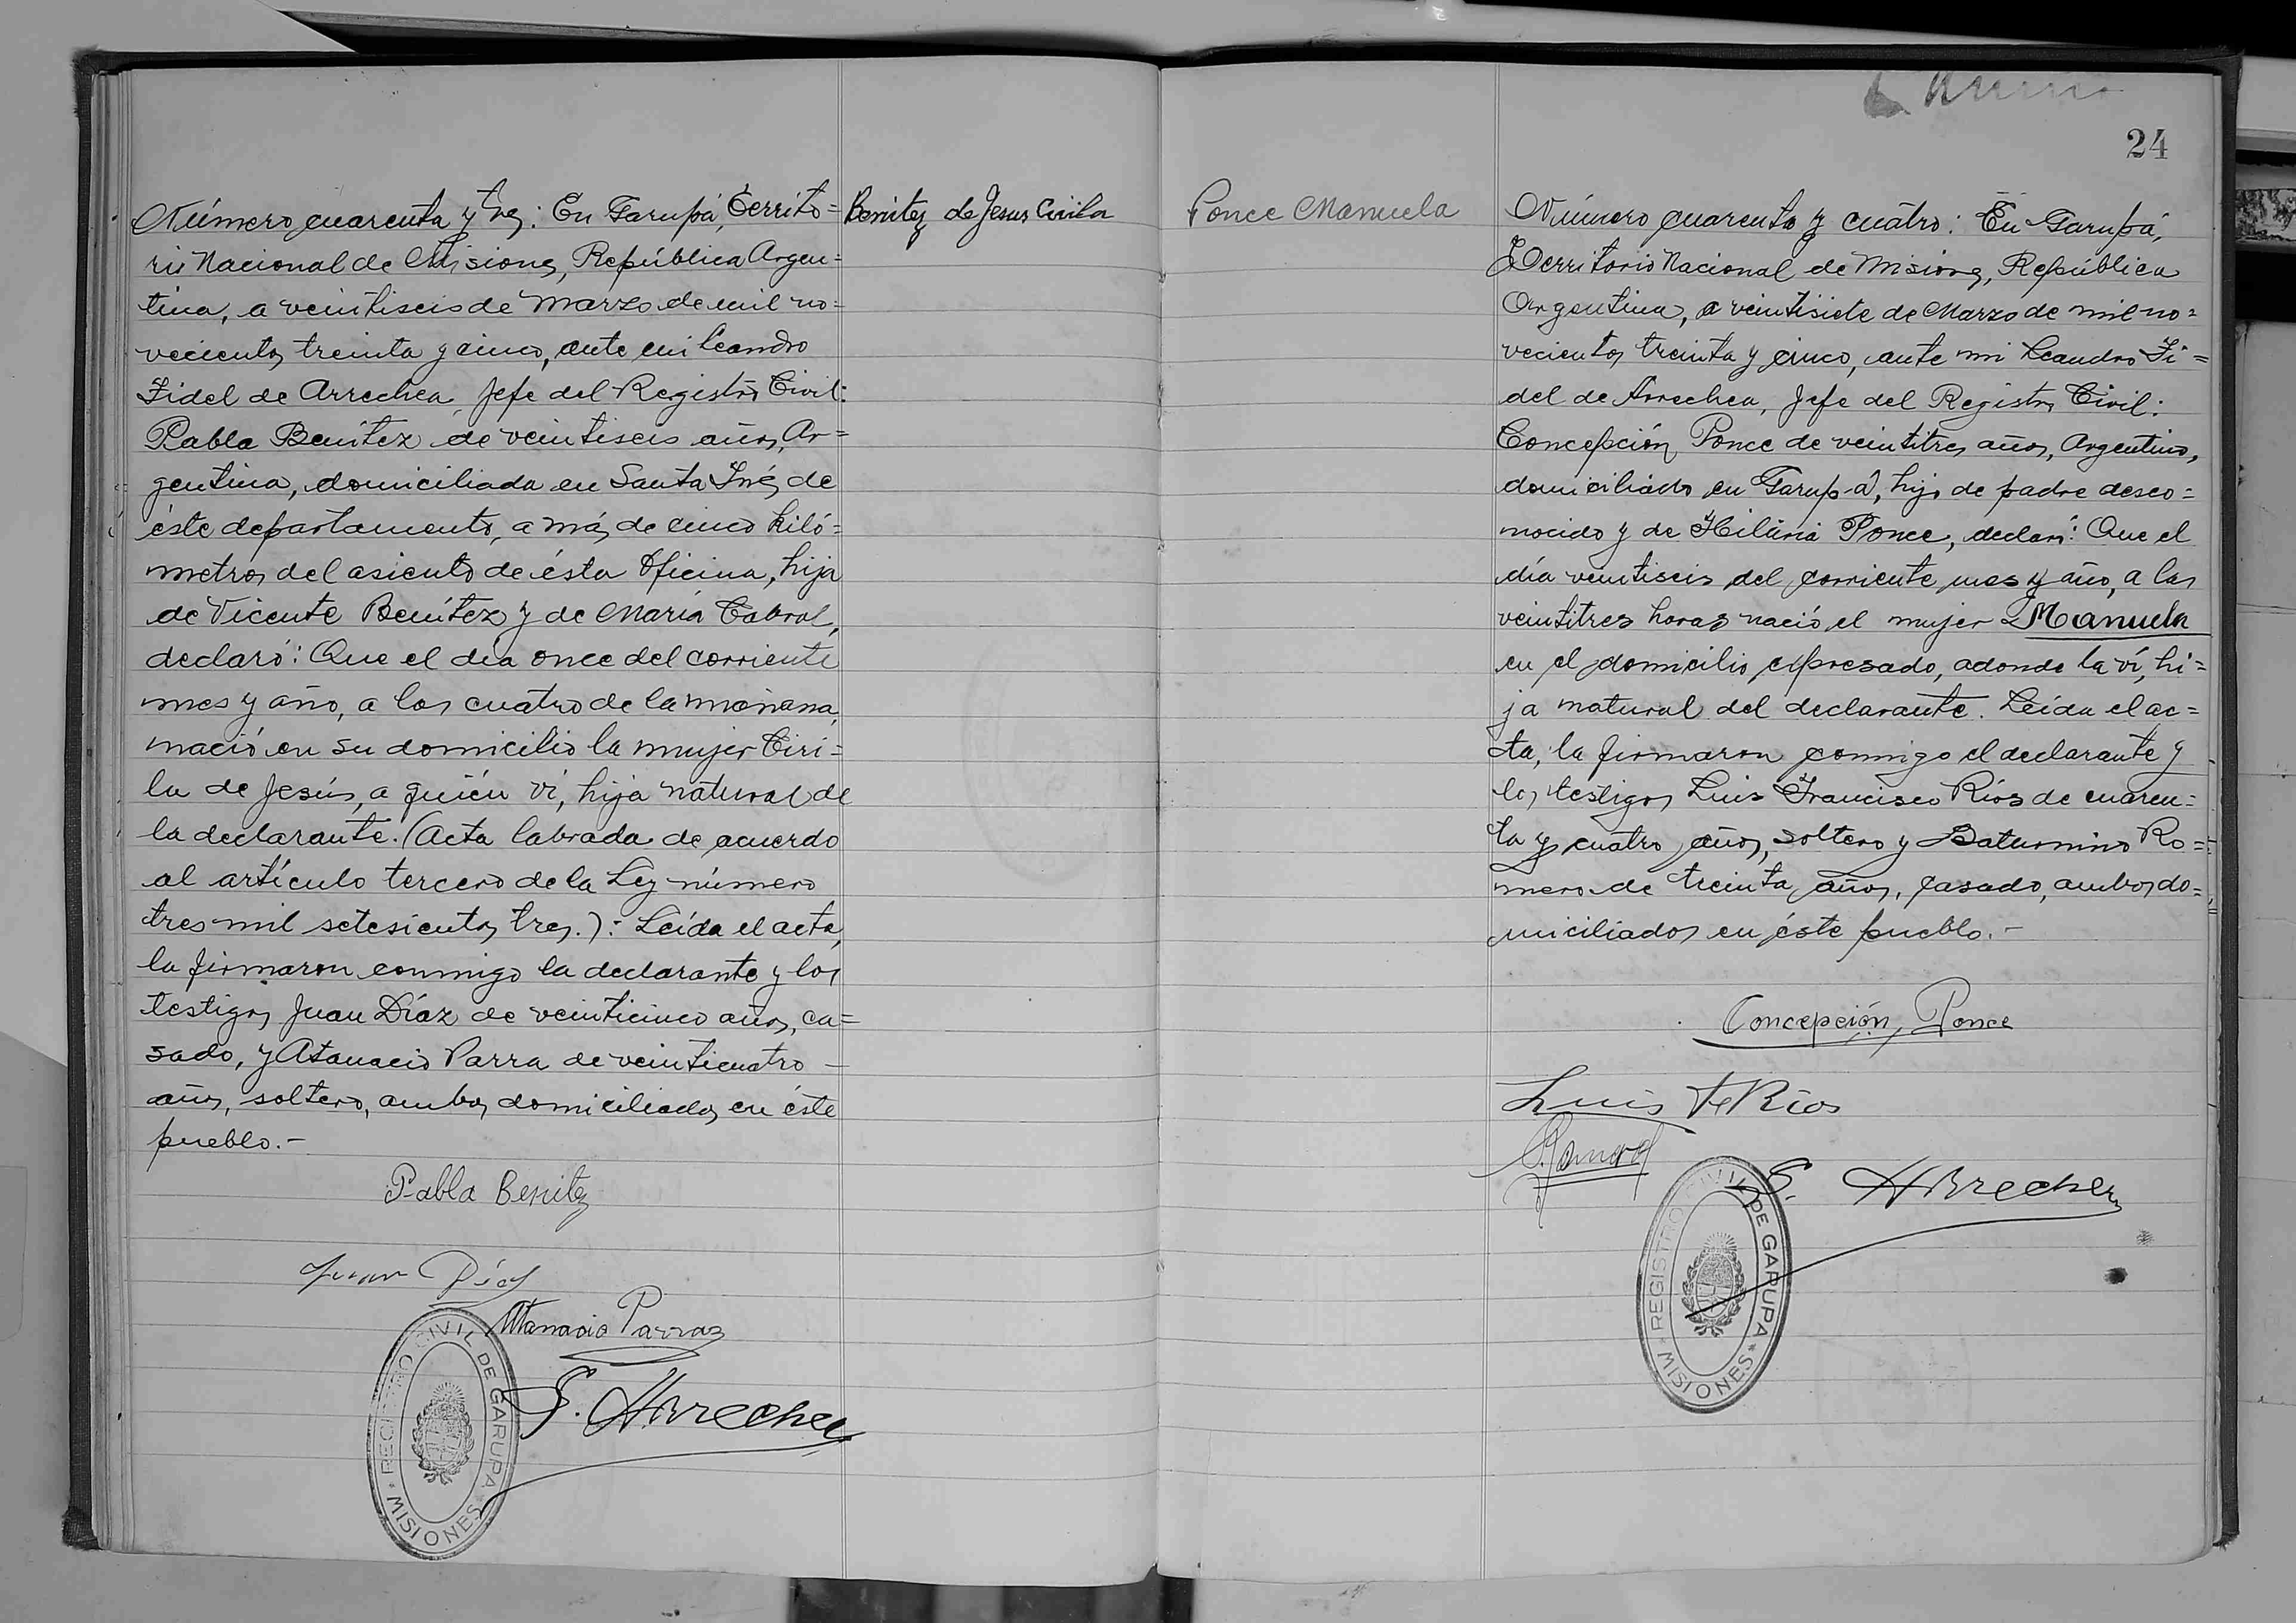 Número cuarenta y tres: En Garupá, Territo=
rio Nacional de Misiones, República Argen=
tina, a veintiseis de Marzo de mil no=
vecientos treinta y cinco, ante mi Leandro
Fidel de Arrechea, Jefe del Registro Civil:
Pabla Benítez de veintiseis años, Ar=
gentina, domiciliada en Santa Inés de
éste departamento, a más de cinco kiló=
metros del asiento de ésta Oficina, hija
de Vicente Benítez y de María Cabral,
declaró: Que el día once del corriente
mes y año, a las cuatro de la mañana,
nació en su domicilio la mujer Ciri=
la de Jesús, a quién ví, hija natural de
la declarante. (Acta labrada de acuerdo
al artículo tercero de la Ley número
tres mil setesientos tres.): Leída el acta,
la firmaron conmigo la declarante y los
testigos Juan Díaz de veinticinco años, ca=
sado, y Atanacio Parra de veinticuatro
años, soltero, ambos domiciliados en éste
pueblo.-
Pabla Benitez
Juan Díaz
Atanacio Parra
F. Arrechea
REGISTRO CIVIL DE GARUPA
* MISIONES *
Benitez de Jesus Cirila
Ponce Manuela
24
Número cuarenta y cuatro: En Garupá,
Territorio Nacional de Misiones, República
Argentina, a veintisiete de Marzo de mil no=
vecientos treinta y cinco, ante mi Leandro Fi=
del de Arrechea, Jefe del Registro Civil:
Concepción Ponce de veintitres años, Argentino,
domiciliado en Garupá, hijo de padre desco=
nocido y de Hilaria Ponce, declaró: Que el
día veintiseis del corriente mes y año, a las
veintitres horas nació el mujer Manuela
en el domicilio expresado, adonde la ví, hi=
ja natural del declarante. Leída el ac=
ta, la firmaron conmigo el declarante y
los testigos Luis Francisco Ríos de cuaren=
ta y cuatro años, soltero y Saturnino Ro=
mero de treinta años, casado, ambos do=
miciliados en éste pueblo.-
Concepción Ponce
Luis F Rios
S. Romero
F. Arrechea
REGISTRO CIVIL DE GARUPA
* MISIONES *